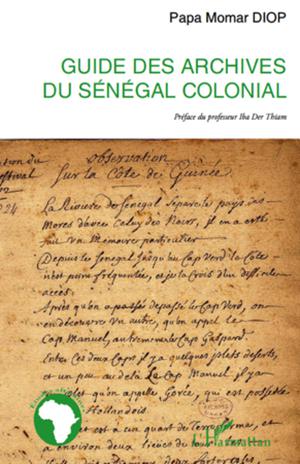 Papa Momar DIOP
GUIDE DES ARCHIVES
DU SÉNÉGAL COLONIAL
Préface du professeur Iba Der Thiam
observation
Sur la Côte de Guinée
La Riviere de Senegal separe le pays des
Mores d'avec celuy des Noirs, il en a esté
fait un Memoire particulier
Depuis le Senegal jusqu'au Cap Verd la Côte
n'est point frequentée, et je la Crois d'un difficile
accès.
Après qu'on a passé depassé le Cap Verd, on
en découvre un autre, qu'on appel le
Cap Manuel, autrement le Cap Gaspard.
Entre ces deux Caps il y a quelques islets deserts,
et un peu au delà le Cap Manuel, il y a
qu'on appelle Gorée, qui est possible
Hollandois
est à un quart de Terre ferme, et
a environ deux lieues de tour
L'Harmattan